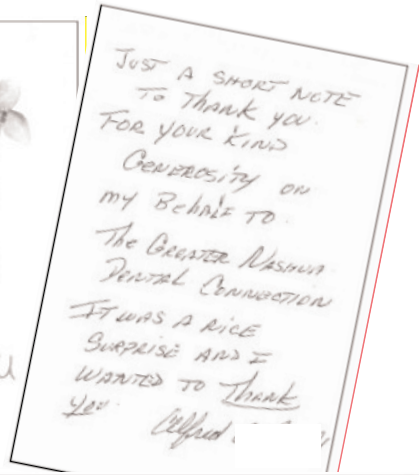 JUST A SHORT NOTE
TO THANK YOU.
FOR YOUR KIND
GENEROSITY ON
MY BEHALF TO.
THE GREATER NASHUA
DENTAL CONNECTION
IT WAS A NICE
SURPRISE AND I
WANTED TO THANK
YOU.
Alfred